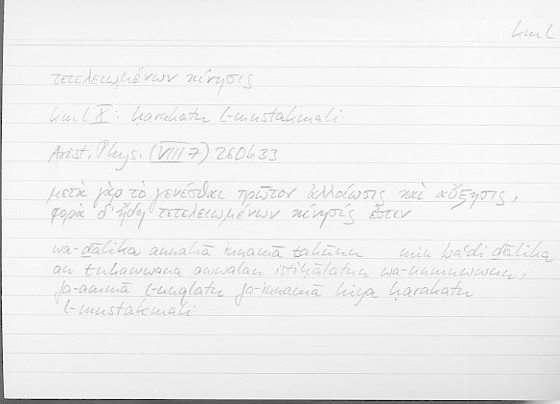 kml
τετελειωμένων κίνησις
kml X̅: ḥarakatu l-mustakmali
Arist. Phys. (VIII 7) 260b33
μετὰ γὰρ τὸ γενέσθαι πρῶτον ἀλλοίωσις καὶ αὔξησις,
φορὰ δ' ἤδη τετελειωμένων κίνησίς ἐστιν
wa-ḏālika annahā innamā takūnu min baʿdi ḏālika
an tukawwana awwalan istiḥālatun wa-numuwwun,
fa-ammā l-nuqlatu fa-innamā hiya ḥarakatu
l-mustakmali